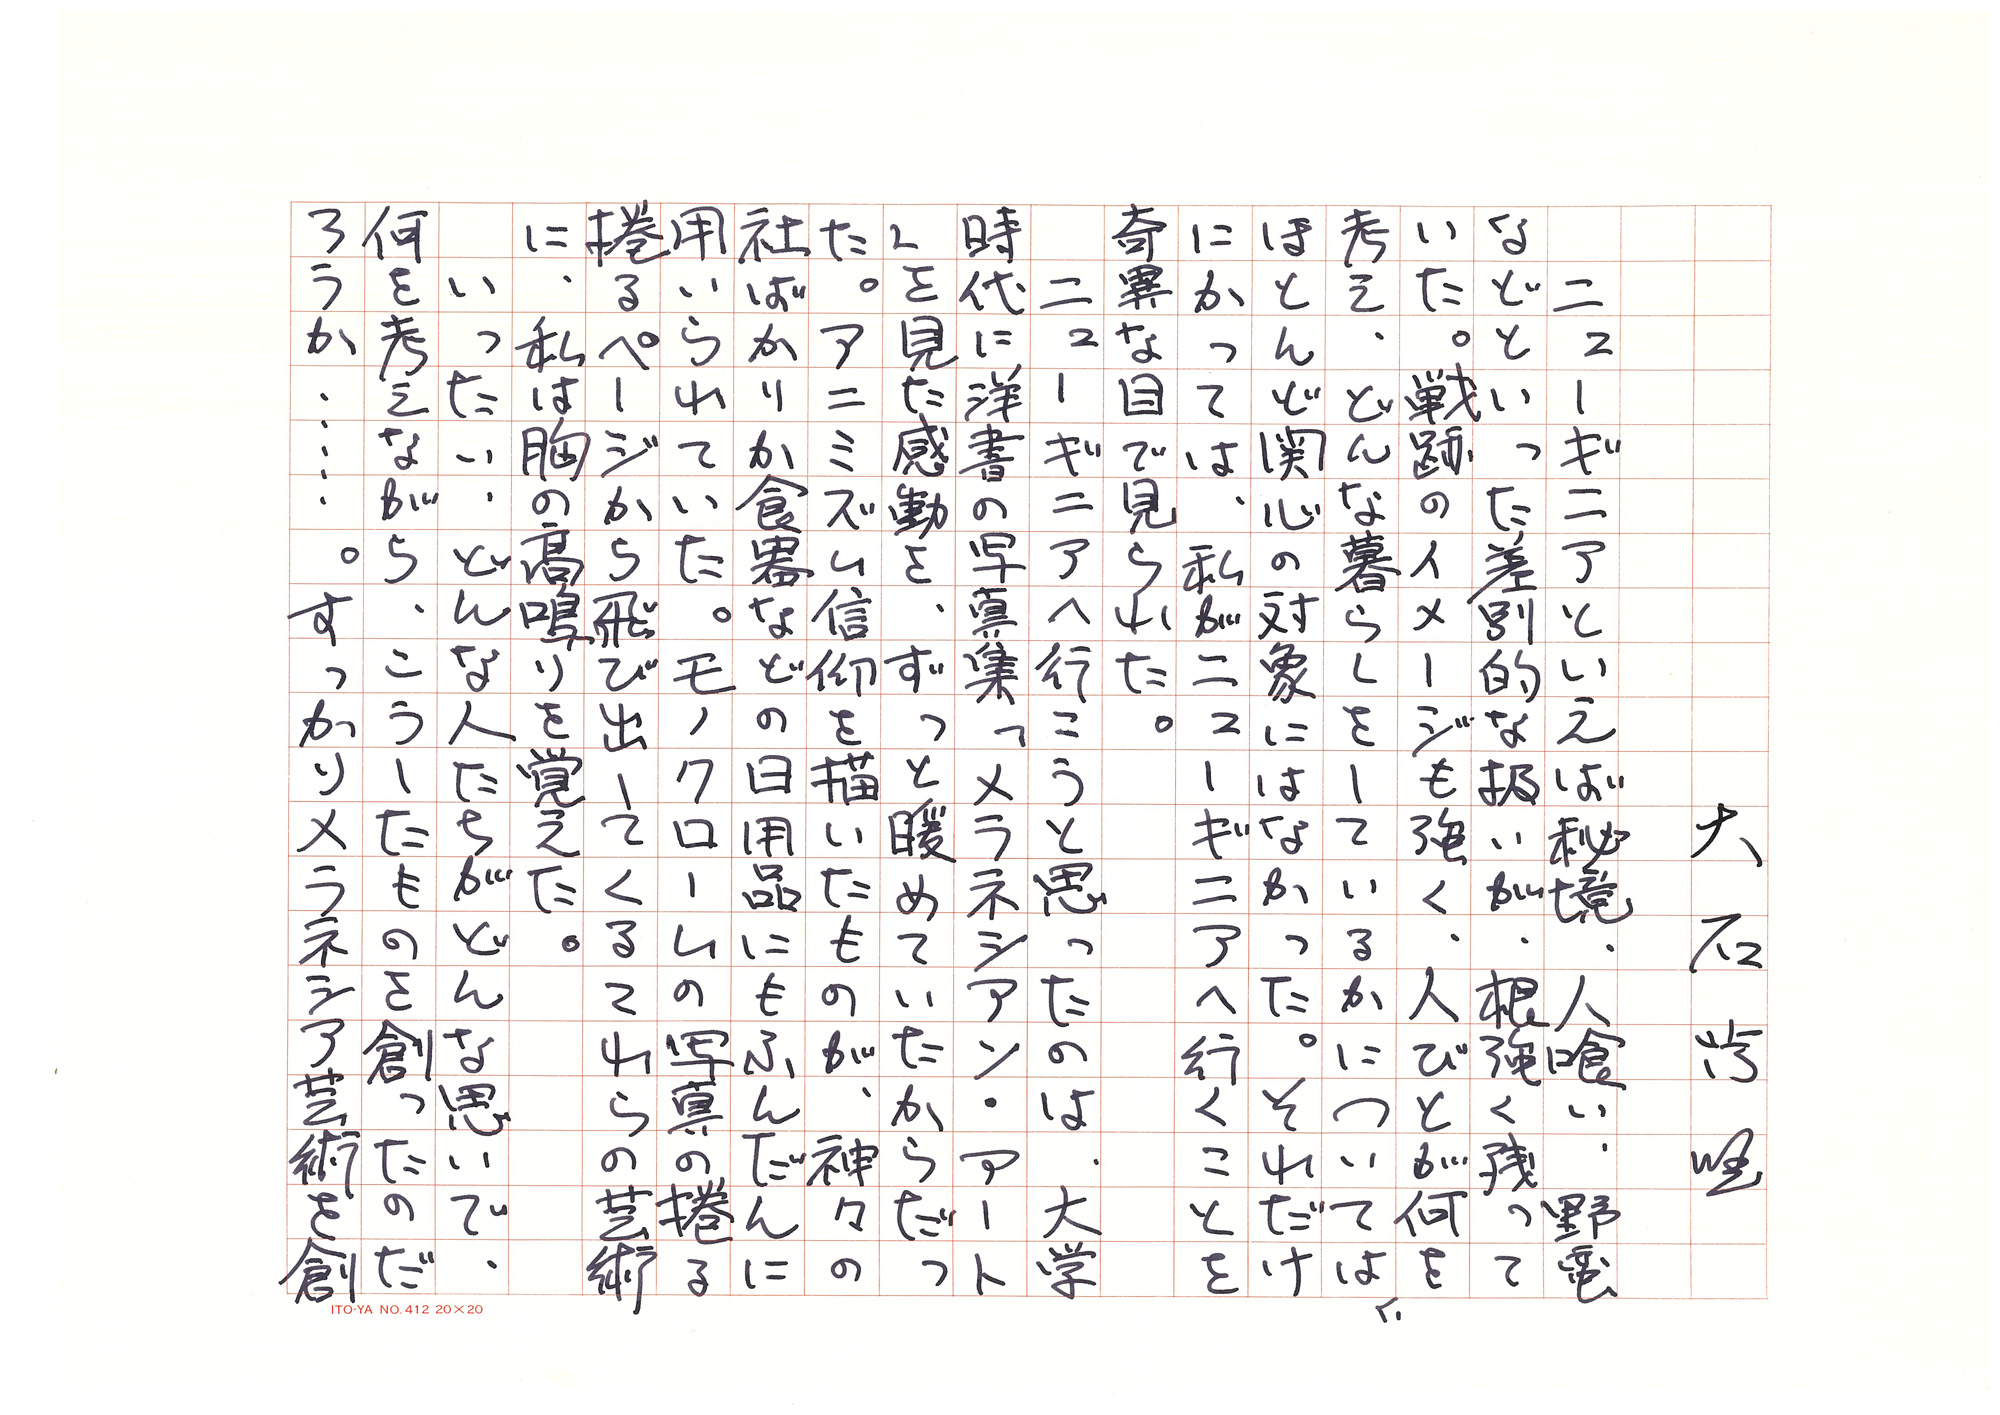 大石芳野
ニューギニアといえば秘境、人喰い、野蛮
などといった差別的な扱いが、根強く残って
いた。戦跡のイメージも強く、人びとが何を
考え、どんな暮らしをしているかについては、
ほとんど関心の対象にはなかった。それだけ
にかつては、私がニューギニアへ行くことを
奇異な目で見られた。
ニューギニアへ行こうと思ったのは、大学
時代に洋書の写真集「メラネシアン・アート
」を見た感動を、ずっと暖めていたからだっ
た。アニミズム信仰を描いたものが、神々の
社ばかりか食器などの日用品にもふんだんに
用いられていた。モノクロームの写真の捲る
捲るページから飛び出してくるこれらの芸術
に、私は胸の高鳴りを覚えた。
いったい、どんな人たちがどんな思いで、
何を考えながら、こうしたものを創ったのだ
ろうか……。すっかりメラネシア芸術を創
ITO-YA NO.412 20×20